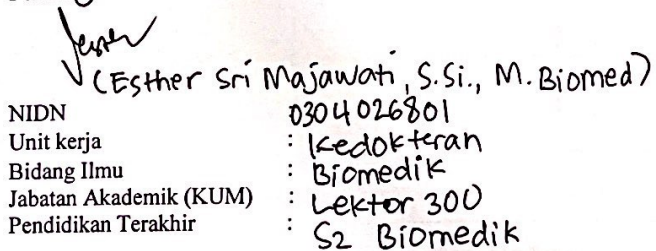 (Esther Sri Majawati, S.Si., M.Biomed)
NIDN 0304026801
Unit kerja : Kedokteran
Bidang Ilmu : Biomedik
Jabatan Akademik (KUM) : Lektor 300
Pendidikan Terakhir : S2 Biomedik